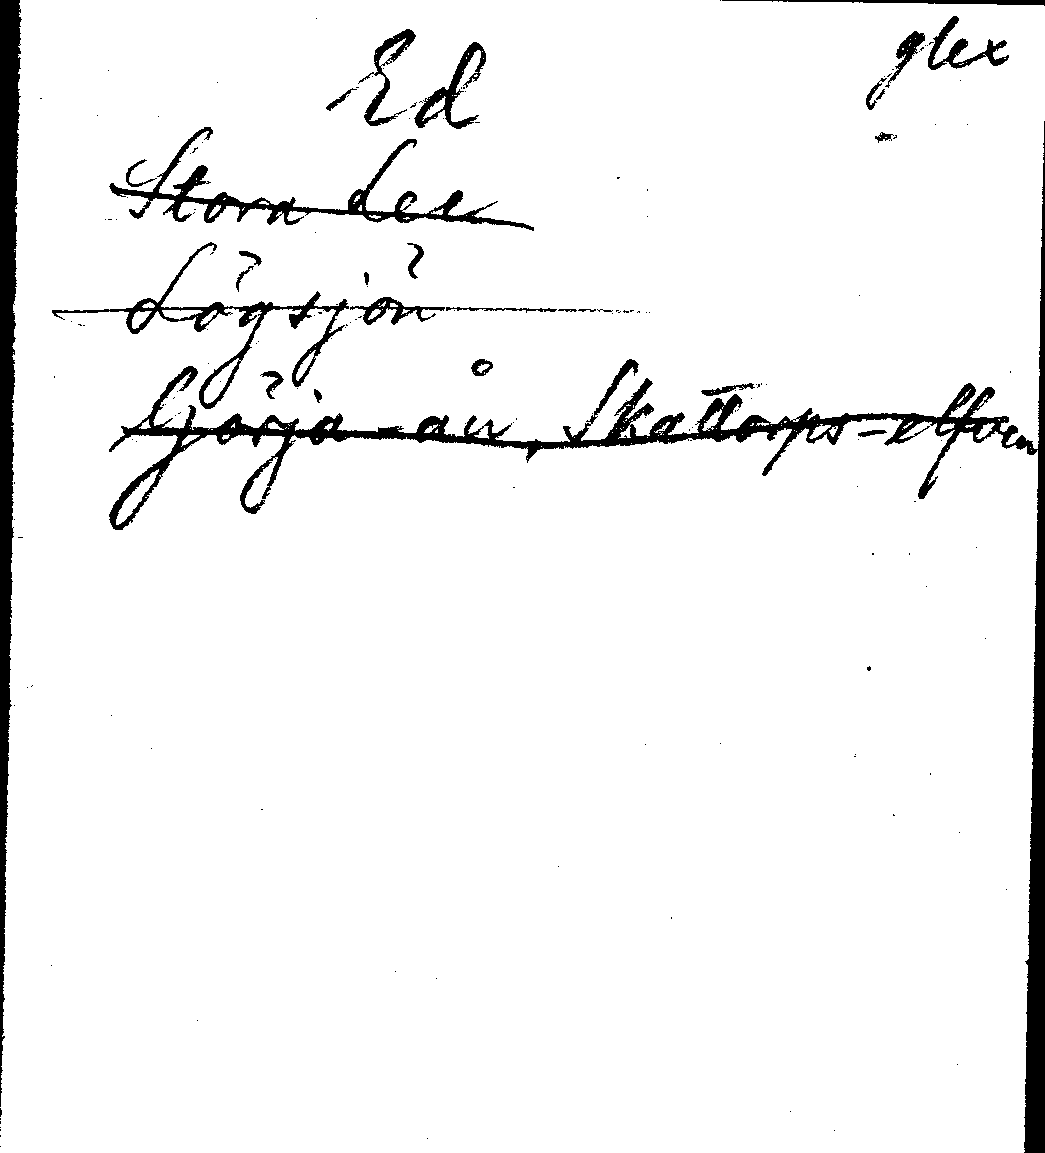 Ed
glex
Stora Lee
Lögsjön
Görja-ån, Skattorps-elfven